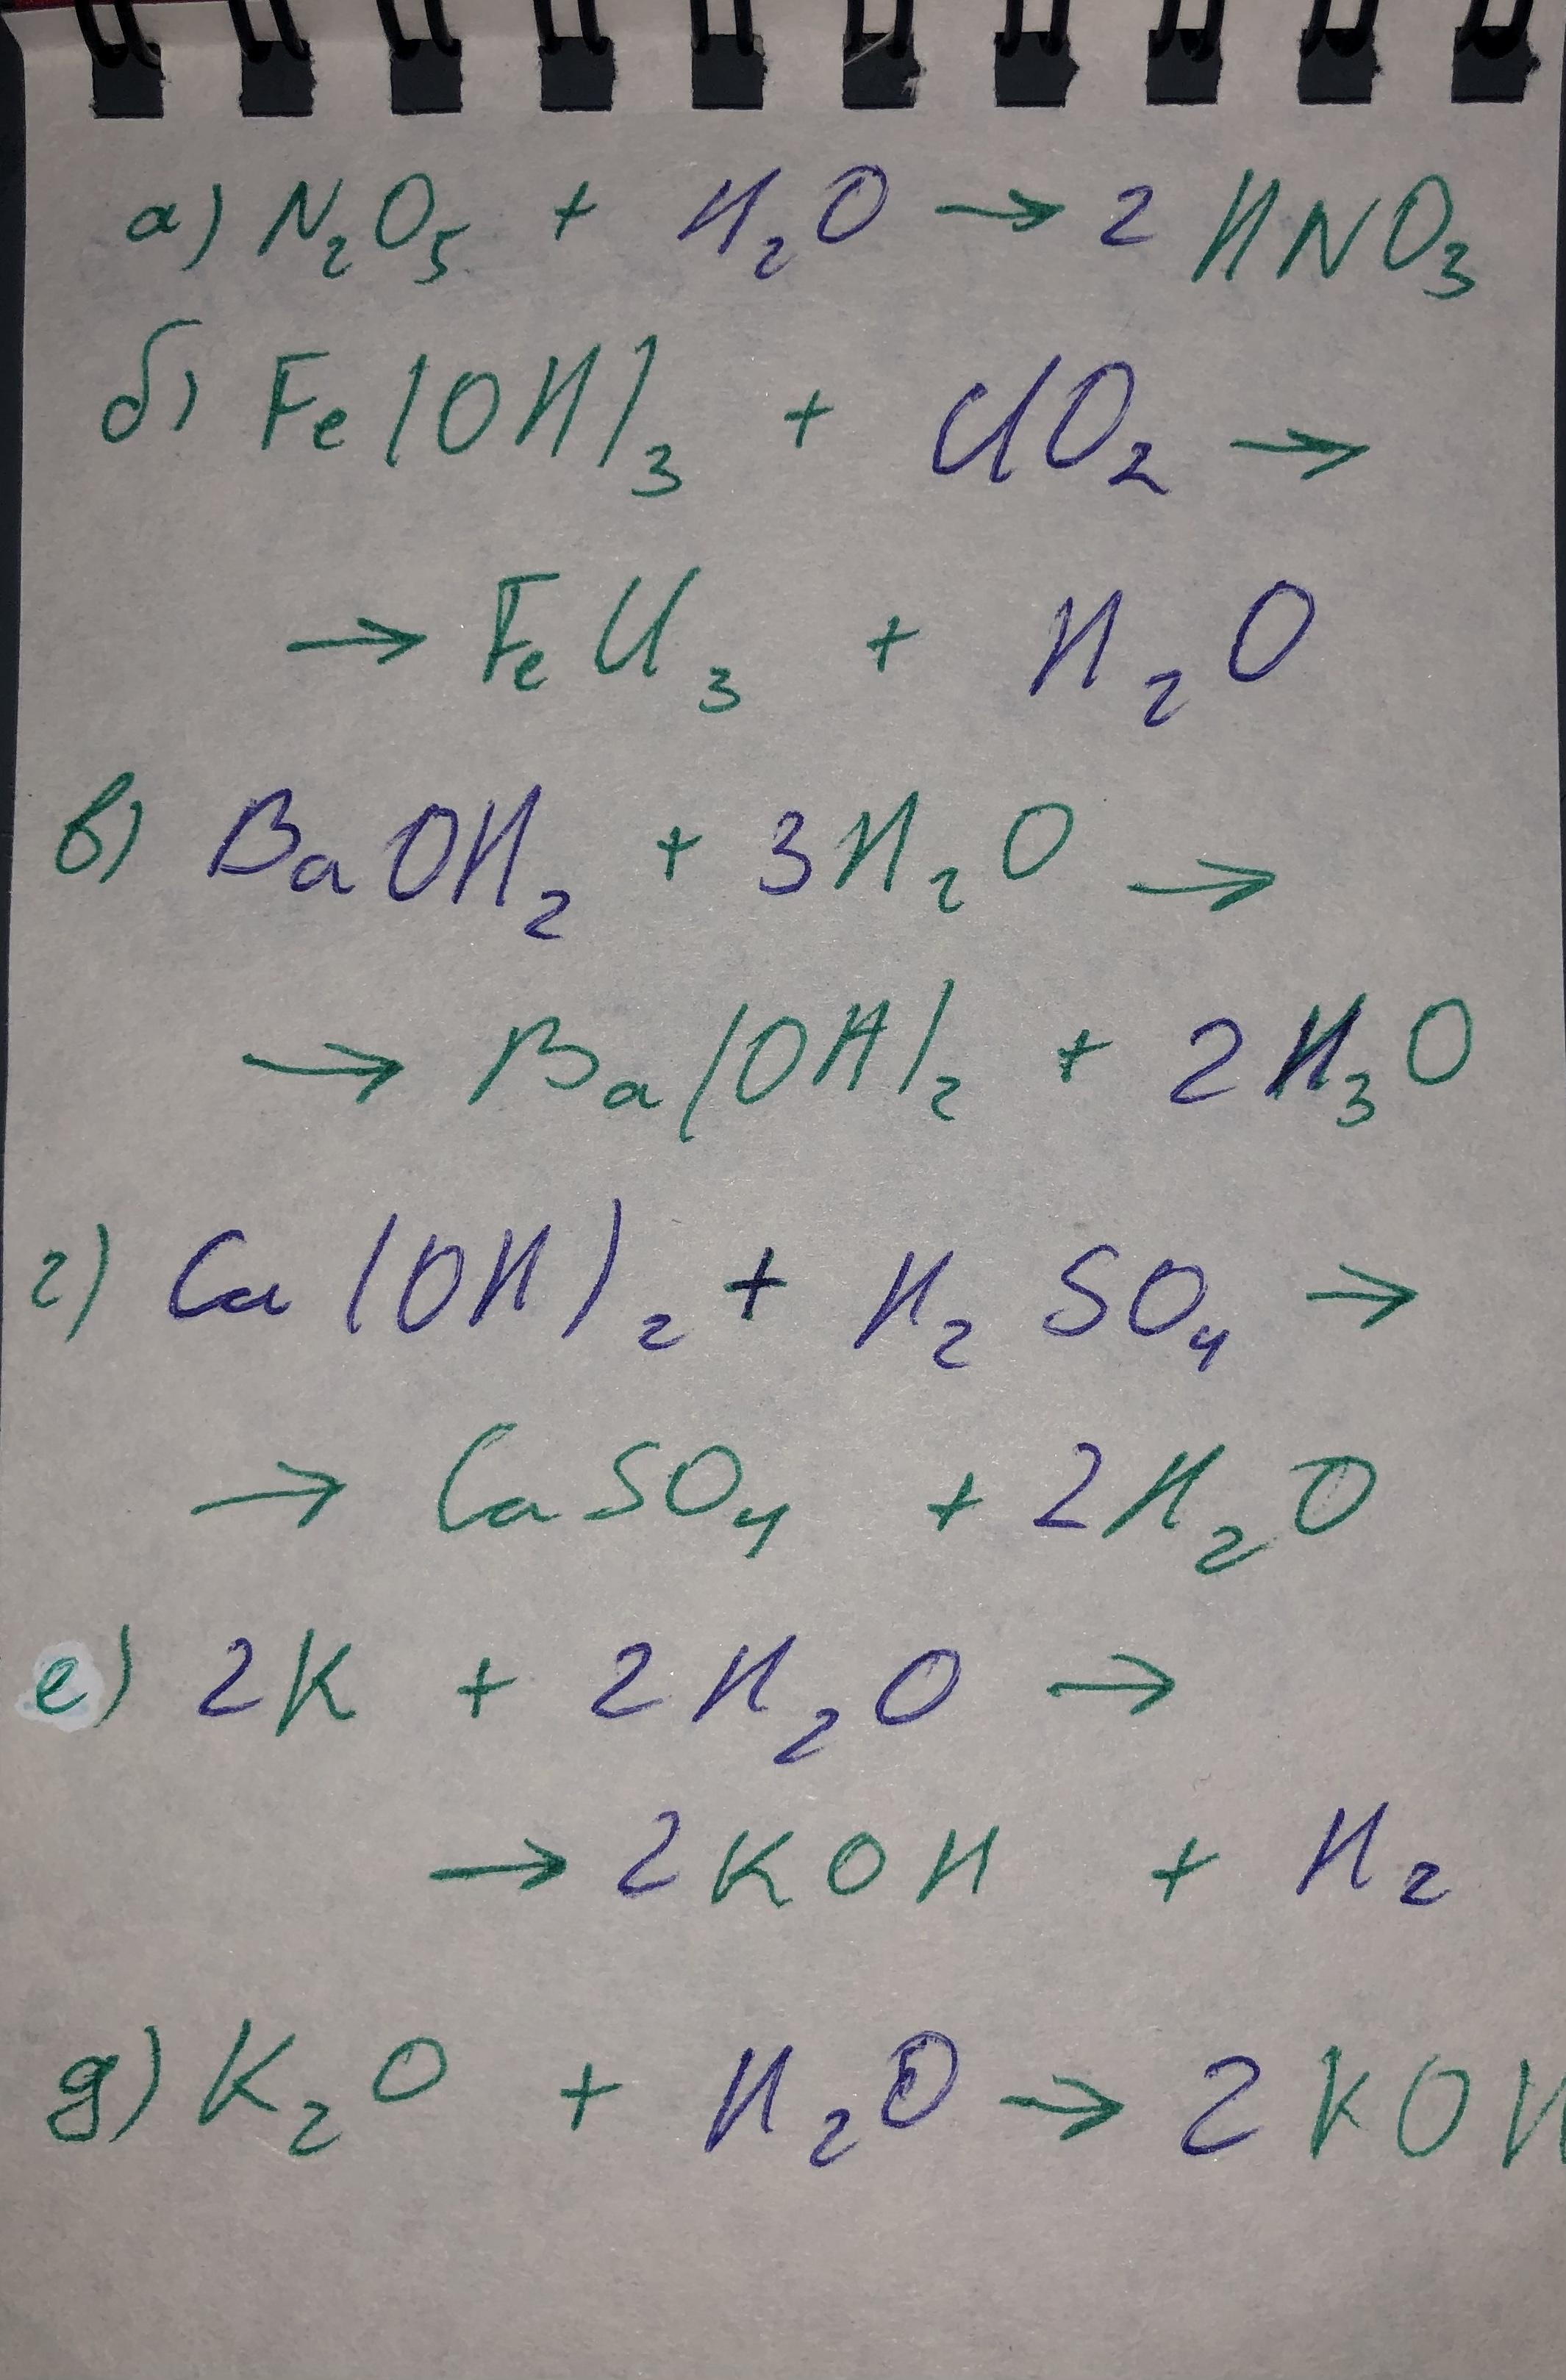 а) N₂O₅ + H₂O → 2 HNO₃
б) Fe(OH)₃ + ClO₂ →
→ FeCl₃ + H₂O
в) BaOH₂ + 3H₂O →
→ Ba(OH)₂ + 2H₃O
г) Ca(OH)₂ + H₂SO₄ →
→ CaSO₄ + 2H₂O
е) 2K + 2H₂O →
→ 2KOH + H₂
д) K₂O + H₂O → 2KOH